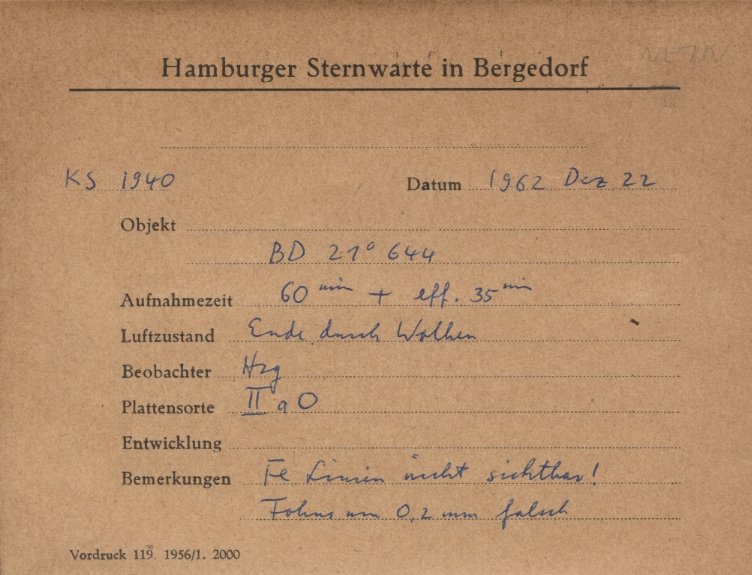 NEIN
Hamburger Sternwarte in Bergedorf
KS 1940 Datum 1962 Dez 22
Objekt
BD 21° 644
Aufnahmezeit 60 min + eff. 35 min
Luftzustand Ende durch Wolken
Beobachter Hzg
Plattensorte II a O
Entwicklung
Bemerkungen Fe Linien nicht sichtbar!
um 0,2 mm falsch
Vordruck 119. 1956/1. 2000